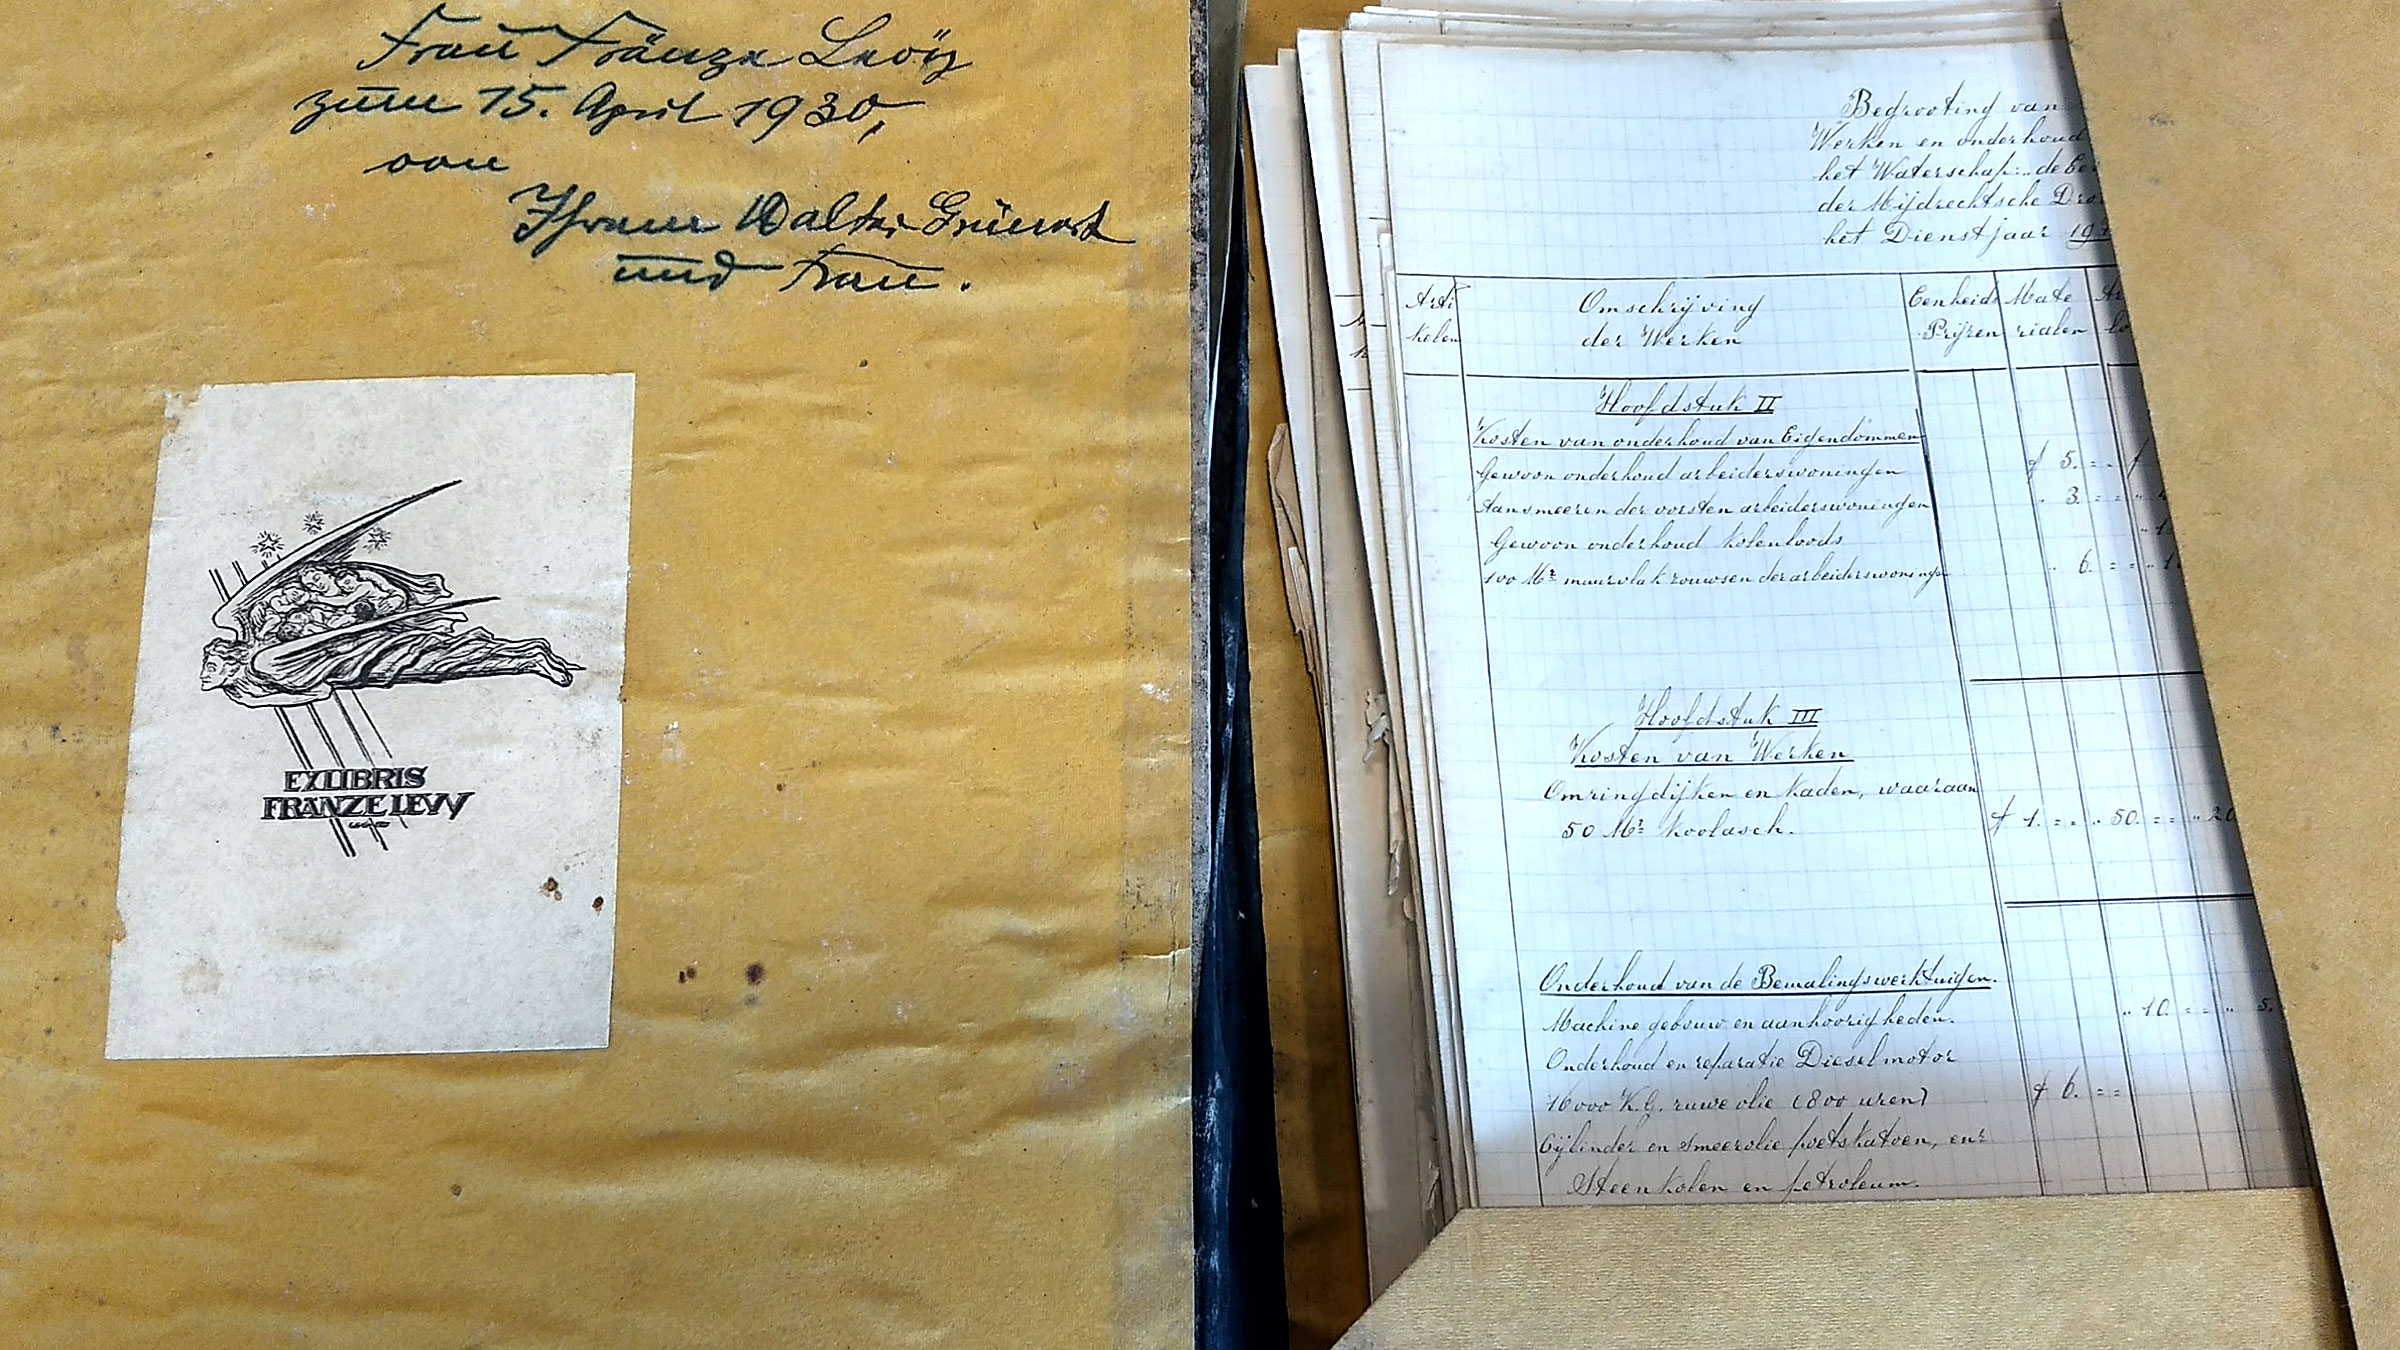 Frau Fränze Levÿ
zum 15. April 1930,
von
Ihrem Walter Grünert
und Frau.
EXLIBRIS
FRÄNZE LEVY
Begrooting van
Werken en onderhoud
het Waterschap: „de
der Mijdrechtsche
het Dienstjaar
Arti Omschrijving Eenheids Mate
kelen der Werken Prijzen rialen
Hoofdstuk II
Kosten van onderhoud van Eigendommen
Gewoon onderhoud arbeiderswoningen f 5. = „ f
Aansmeeren der vorsten arbeiderswoningen „ 3. = = „
Gewoon onderhoud kolenloods
100 M² muurvlak rouwsen der arbeiderswoningen „ 6. = = „
Hoofdstuk III
Kosten van Werken
Omringdijken en kaden, waaraan
50 M³ koolasch. f 1. = = „ 50. = = „ 20
Onderhoud van de Bemalingswerktuigen.
Machine gebouw en aanhoorigheden. „ 10. = = „ 5.
Onderhoud en reparatie Dieselmotor
16000 K.G. ruwe olie (800 uren) f 6. = =
Cijlinder en smeerolie poetskatoen, enz
Steenkolen en petroleum.